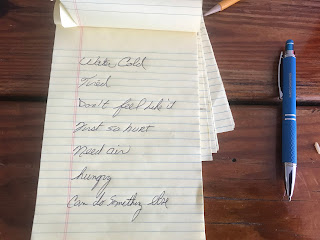 Water Cold
Tired
Don't feel like it
Just so hurt
Need air
hungry
Can do something else